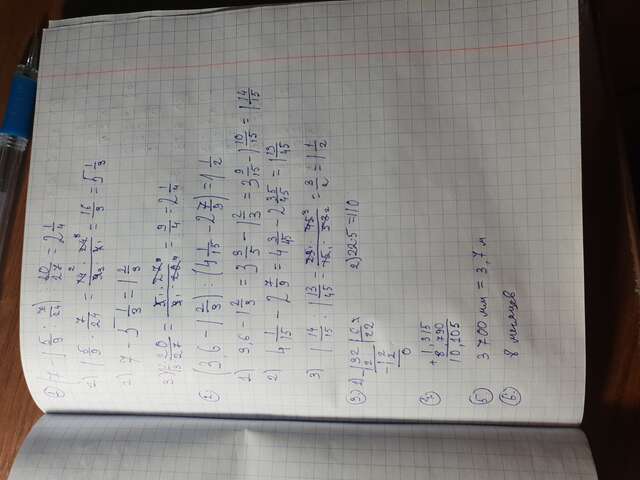 1. (7 - 1 5/9 : 7/24) : 20/27 = 2 1/4
1) 1 5/9 : 7/24 = 14 · 24 / 9 · 7 = 16/3 = 5 1/3
2) 7 - 5 1/3 = 1 2/3
3) : 20/27 = 5 · 27 / 3 · 20 = 9/4 = 2 1/4
2. (3,6 - 1 2/3) : (4 1/15 - 2 7/9) = 1 1/2
1) 3,6 - 1 2/3 = 3 3/5 - 1 2/3 = 3 9/15 - 1 10/15 = 1 14/15
2) 4 1/15 - 2 7/9 = 4 3/45 - 2 35/45 = 1 13/45
3) 1 14/15 : 1 13/45 = 29 · 45 / 15 · 58 = 3/2 = 1 1/2
3. 1) 132 2) 22·5 = 110
12 22
- 12
12
0
4. + 1,315
8,790
10,105
5. 3700 мм = 3,7 м
6. 8 месяцев